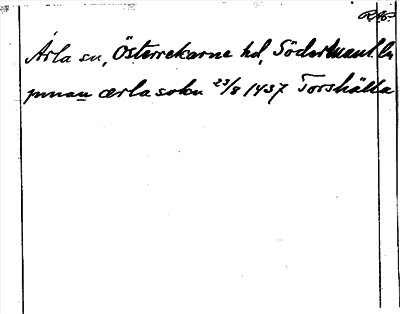 RAp.
Ärla sn, Österrekarne hd, Södermanl. län
innan ærla sokn 23/8 1437 Torshälla